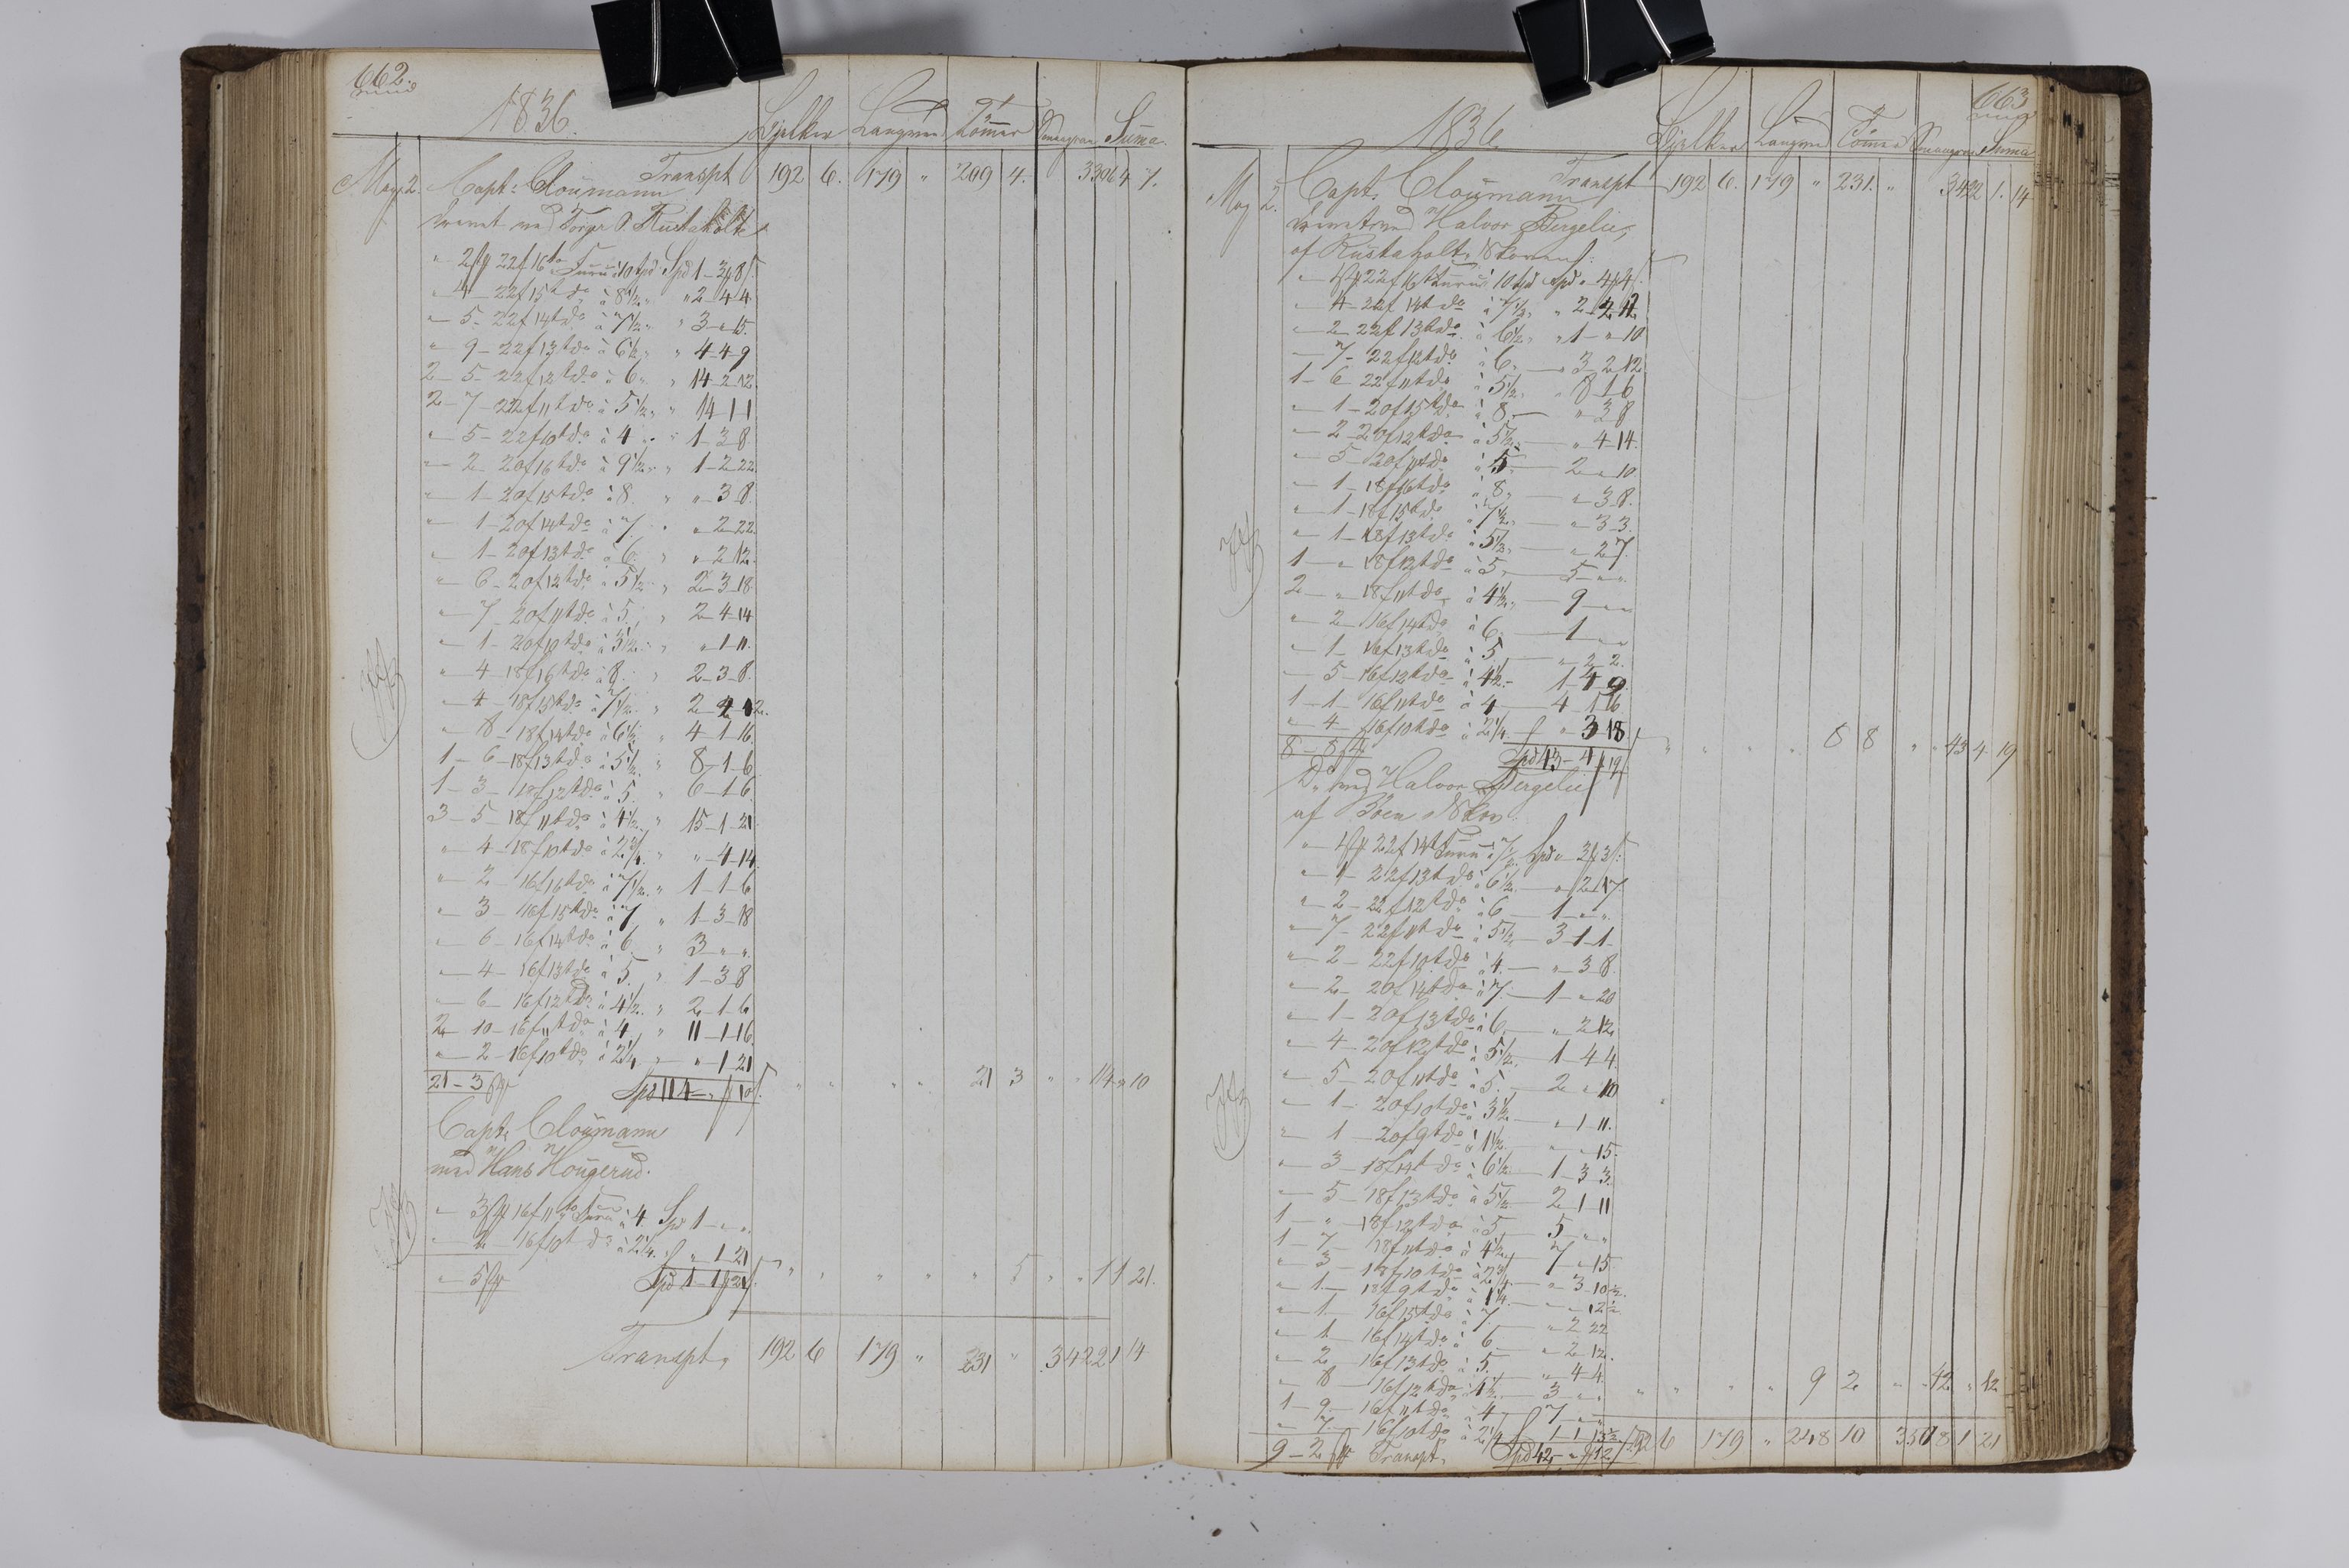 662.
1836.
Bjelker Langved Tømmer Smaagran Suma
May 2. Capt: Cloumann Transpt 192 6. 179 " 209 4. 3306 4 7.
leveret ved Torger O. Rustaholte
" 2 tf 22f 16t Furu à 10 ppd Spd 1-3-8
"-4-22f 15t do à 8½ " 2-4-4
"-5-22f 14t do à 7½ " 3-"-15.
"-9-22f 13t do à 6½ " 4-4-9
2-5-22f 12t do à 6 " 14-2-12
2-7-22f 11t do à 5½ " 14-1-1
"-5-22f 10t do à 4 " 1-3-8
"-2-20f 16t do à 9½ " 1-2-22
"-1-20f 15t do à 8 " "-3-8
"-1-20f 14t do à 7 " "-2-22
"-1-20f 13t do à 6 " "-2-12
"-6-20f 12t do à 5½ " 2-3-18
"-7-20f 11t do à 5 " 2-4-14
"-1-20f 10t do à 3½ " "-1-11
"-4-18f 16t do à 8 " 2-3-8
"-4-18f 15t do à 7½ " 2-2-12
"-8-18f 14t do à 6½ " 4-1-16
1-6-18f 13t do à 5½ " 8-1-6
1-3-18f 12t do à 5 " 6-1-6
3-5-18f 11t do à 4½ " 15-1-21
"-4-18f 10t do à 2¾ " "-4-14
"-2-16f 16t do à 7½ " 1-1-6
"-3-16f 15t do à 7 " 1-3-18
"-6-16f 14t do à 6 " 3-"-"
"-4-16f 13t do à 5 " 1-3-8
"-6-16f 12t do à 4½ " 2-1-6
2-10-16f 11t do à 4 " 11-1-16
"-2-16f 10t do à 2¼ " "-1-21
21-3 Spd 114-"-10 " " " " 21 3 " " 114 " 10
Capt: Cloumann
med Hans Hougerud.
"-3 16f 11t Furu à 4 Spd 1-"-"
"-2 16f 10t do à 2¼ "-1-21
"-5 Spd 1-1-21 " " " " " 5 " " 1 1 21.
Transpt, 192 6 179 " 231 " 3422 1 14
663
1836
Bjelker Langved Tømmer Smaagran Suma
May 2. Capt: Cloumann Transpt 192 6. 179 " 231. " 3422 1. 14
leveret ved Halvor Bergelie,
af Rustaholte Skoven
"-1 22f 16t Furu à 10 ppd Spd "-4-4
"-4-22f 14t do à 7½ " 2-2-12
"-2-22f 13t do à 6½ " 1-"-10
"-7-22f 12t do à 6 " 3-2-12
1-6-22f 11t do à 5½ " 8-1-6
"-1-20f 15t do à 8 " "-3-8
"-2-20f 12t do à 5½ " "-4-14
"-5-20f 11t do à 5 2-"-10
"-1-18f 16t do à 8 "-3-8
"-1-18f 15t do à 7½ "-3-3
"-1-18f 13t do à 5½ "-2-7
1-"-18f 12t do à 5 5-"-"
2-"-18f 11t do à 4½ 9-"-"
"-2-16f 14t do à 6 1-"-"
"-1-16f 13t do à 5 "-2-2
"-5-16f 12t do à 4½ 1-4-9
1-1-16f 11t do à 4 4-1-16
"-4-16f 10t do à 2¼ "-3-18
8-8 Spd 43-4-19 " " " " 8 8 " " 43 4 19
Do med Halvor Bergelie
af Böen Skov
"-1 22f 14t Furu à 7½ Spd "-3-3
"-1-22f 13t do à 6½ "-2-17
"-2-22f 12t do à 6 1-"-"
"-7-22f 11t do à 5½ 3-1-1
"-2-22f 10t do à 4 "-3-8
"-2-20f 14t do à 7 1-"-20
"-1-20f 13t do à 6 "-2-12
"-4-20f 12t do à 5½ 1-4-4
"-5-20f 11t do à 5 2-"-10
"-1-20f 10t do à 3½ "-1-11
"-1-20f 9t do à 1½ "-"-15
"-3-18f 14t do à 6½ 1-3-3
"-5-18f 13t do à 5½ 2-1-11
1-"-18f 12t do à 5 5-"-"
1-7-18f 11t do à 4½ 7-"-15
"-3-18f 10t do à 2¾ "-3-10½
"-1-18f 9t do à 1¼ "-"-12½
"-1-16f 15t do à 7 "-2-22
"-1-16f 14t do à 6 "-2-12
"-2-16f 13t do à 5 "-4-4
"-8-16f 12t do à 4½ 3-"-"
1-9-16f 11t do à 4 7-"-" " " " " 9 2 " " 42 " 12
"-7-16f 10t do à 2¼ 1-1-13½
9-2 Transpt, Spd 42-"-12 192 6 179 " 248 10 3508 1 21